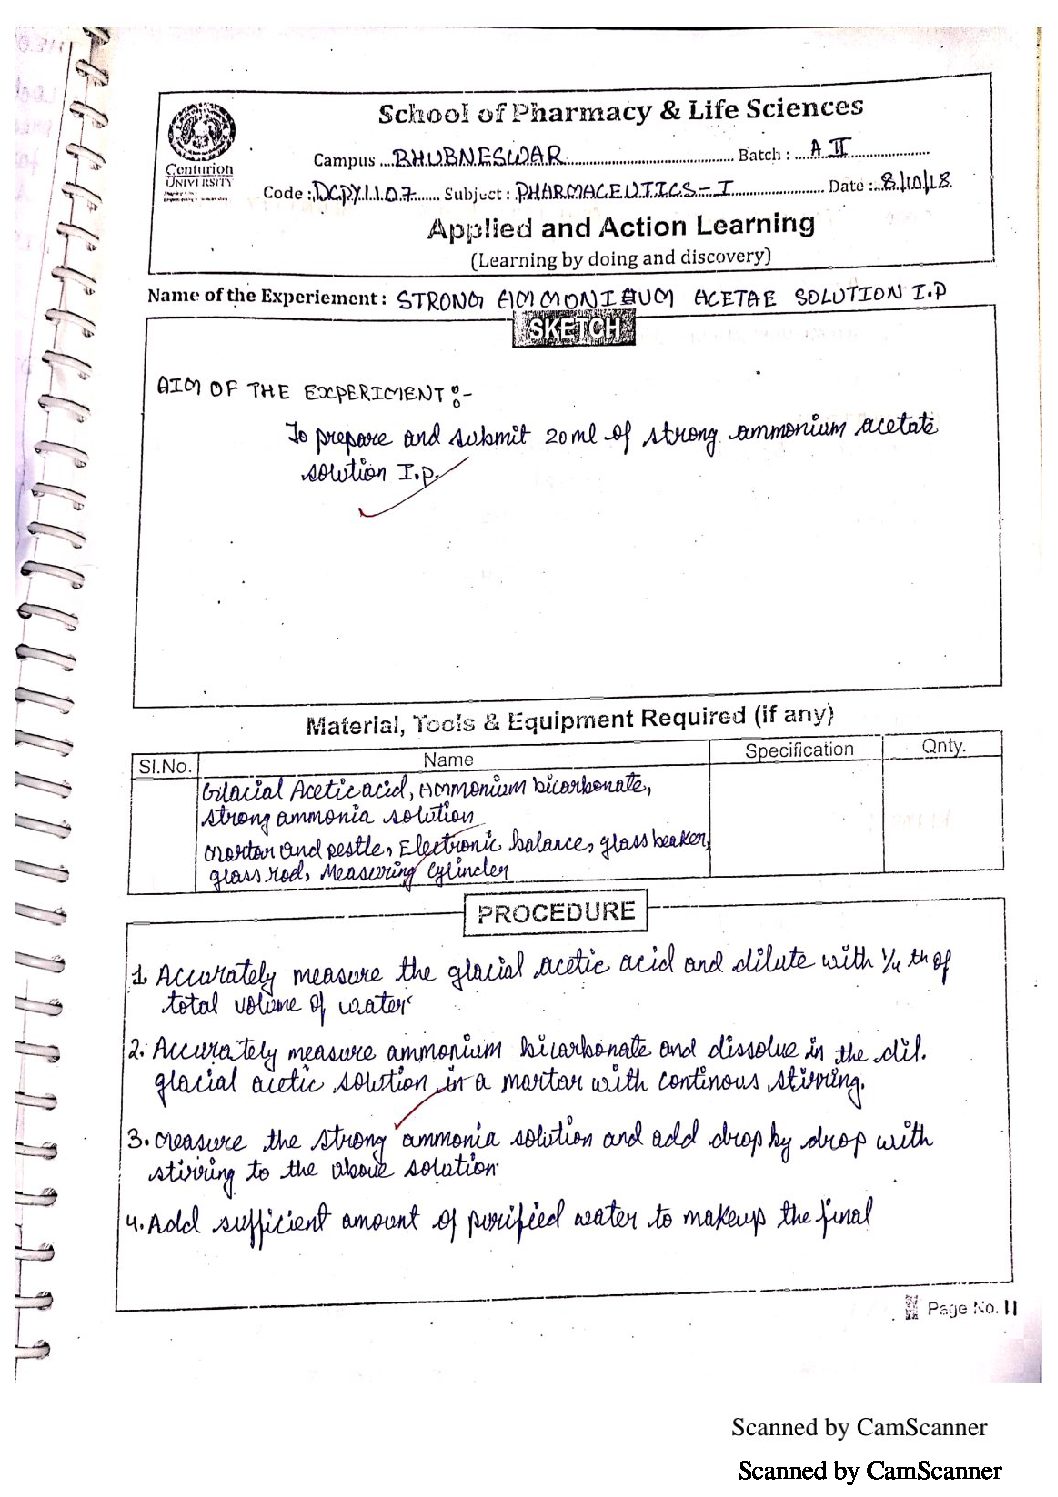 School of Pharmacy & Life Sciences
Campus ...BHUBNESWAR... Batch : ...A II...
Centurion
UNIVERSITY
Code :.DCPY1107... Subject : PHARMACEUTICS-I... Date :..8/10/18
Applied and Action Learning
(Learning by doing and discovery)
Name of the Experiement : STRONG AMMONIUM ACETAE SOLUTION I.P
SKETCH
AIM OF THE EXPERIMENT :-
To prepare and submit 20ml of strong ammonium acetate
solution I.p.
Material, Tools & Equipment Required (if any)
Sl.No. Name Specification Qnty.
Glacial Acetic acid, Ammonium bicarbonate,
strong ammonia solution
mortar and pestle, Electronic balance, glass beaker,
glass rod, Measuring Cylinder
PROCEDURE
1 Accurately measure the glacial acetic acid and dilute with 1/4 th of
total volume of water
2. Accurately measure ammonium bicarbonate and dissolve in the dil.
glacial acetic solution in a mortar with continous stirring.
3. measure the strong ammonia solution and add drop by drop with
stirring to the above solution
4. Add sufficient amount of purified water to makeup the final
Page No. 11
Scanned by CamScanner
Scanned by CamScanner